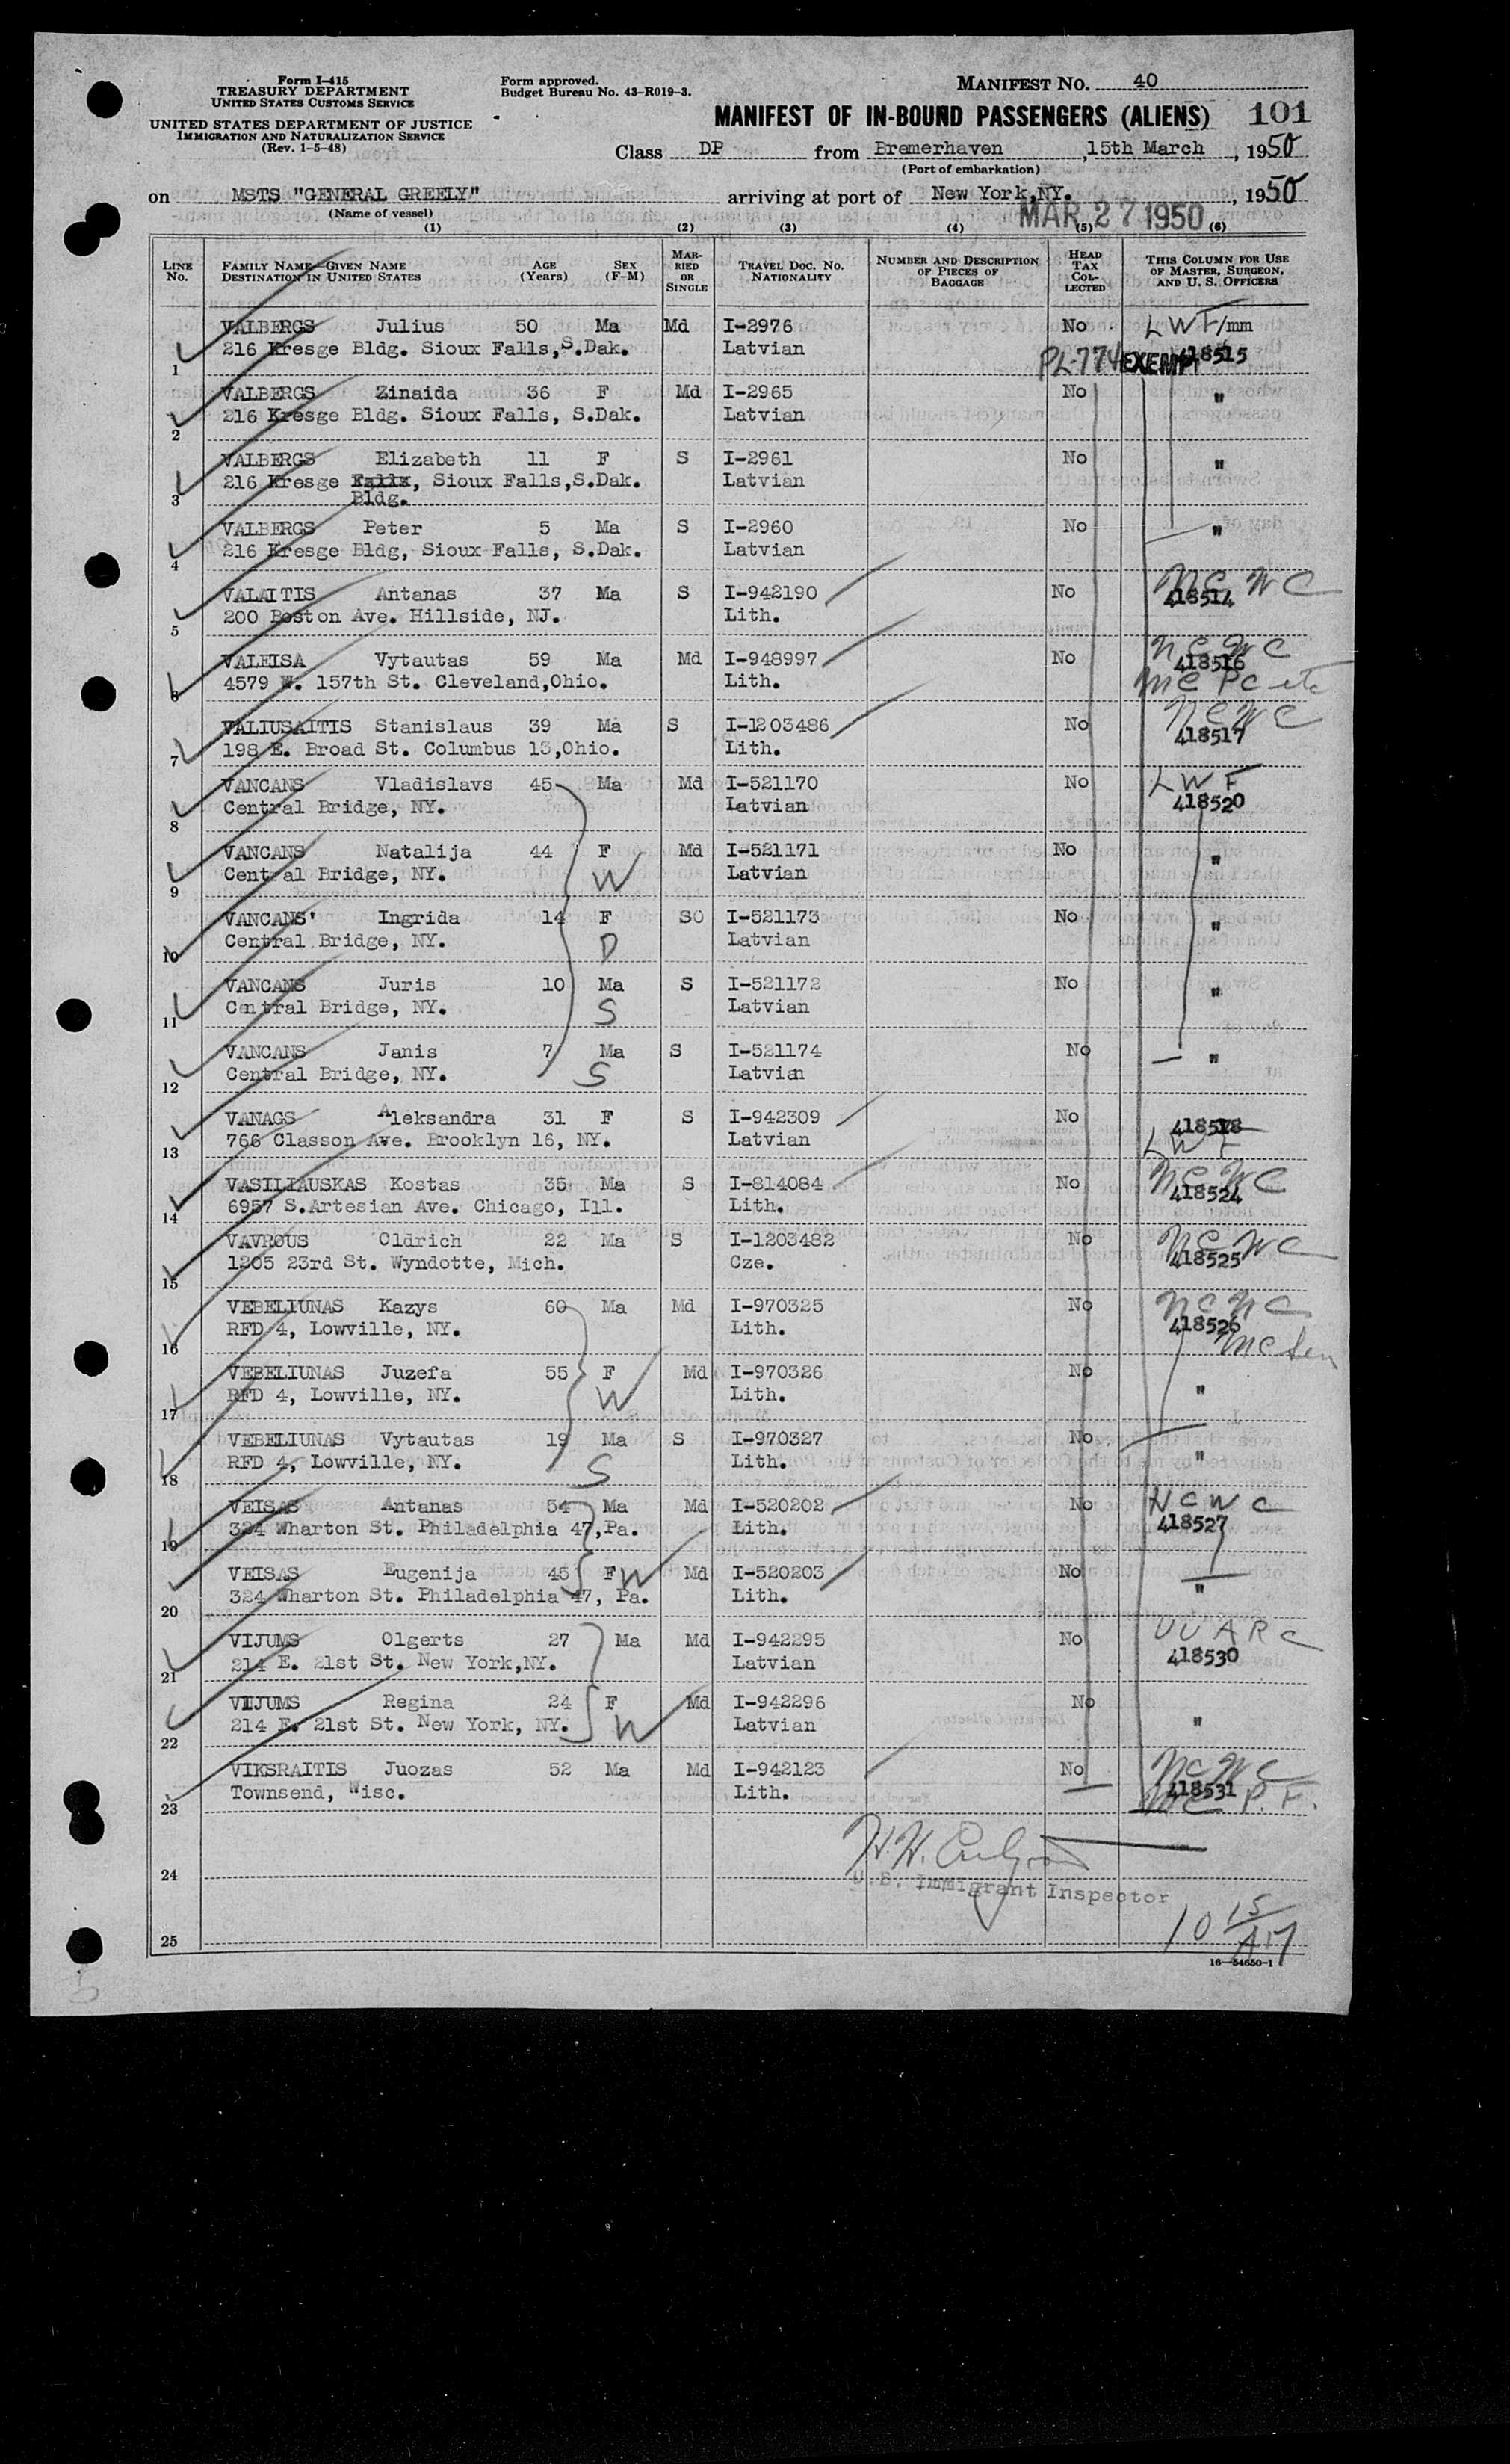 Form I-415
TREASURY DEPARTMENT
UNITED STATES CUSTOMS SERVICE
UNITED STATES DEPARTMENT OF JUSTICE
IMMIGRATION AND NATURALIZATION SERVICE
(Rev. 1-5-48)
Form approved.
Budget Bureau No. 43-R019-3.
MANIFEST No. 40
MANIFEST OF IN-BOUND PASSENGERS (ALIENS) 101
Class DP from Bremerhaven, 15th March, 1950
(Port of embarkation)
on MSTS "GENERAL GREELY" arriving at port of New York,NY., 1950
(Name of vessel)
MAR 27 1950
(1) (2) (3) (4) (5) (6)
LINE No. FAMILY NAME—GIVEN NAME DESTINATION IN UNITED STATES AGE (Years) SEX (F-M) MARRIED OR SINGLE TRAVEL DOC. NO. NATIONALITY NUMBER AND DESCRIPTION OF PIECES OF BAGGAGE HEAD TAX COLLECTED THIS COLUMN FOR USE OF MASTER, SURGEON, AND U. S. OFFICERS
VALBERGS Julius 50 Ma Md I-2976 No LWF/mm
1 216 Kresge Bldg. Sioux Falls,S.Dak. Latvian PL-774 EXEMPT 418515
VALBERGS Zinaida 36 F Md I-2965 No "
2 216 Kresge Bldg. Sioux Falls, S.Dak. Latvian
VALBERGS Elizabeth 11 F S I-2961 No "
3 216 Kresge Falls, Sioux Falls,S.Dak. Latvian
Bldg.
VALBERGS Peter 5 Ma S I-2960 No "
4 216 Kresge Bldg, Sioux Falls, S.Dak. Latvian
VALAITIS Antanas 37 Ma S I-942190 No NCWC
5 200 Boston Ave. Hillside, NJ. Lith. 418514
VALEISA Vytautas 59 Ma Md I-948997 No NCWC
6 4579 W. 157th St. Cleveland,Ohio. Lith. 418516
VALIUSAITIS Stanislaus 39 Ma S I-1203486 No NCWC
7 198 E. Broad St. Columbus 13,Ohio. Lith. 418517
VANCANS Vladislavs 45 Ma Md I-521170 No LWF
8 Central Bridge, NY. Latvian 418520
VANCANS Natalija 44 F Md I-521171 No "
9 Central Bridge, NY. W Latvian
VANCANS' Ingrida 14 F SO I-521173 No "
10 Central Bridge, NY. D Latvian
VANCANS Juris 10 Ma S I-521172 No "
11 Central Bridge, NY. S Latvian
VANCANS Janis 7 Ma S I-521174 No "
12 Central Bridge, NY. S Latvian
VANAGS Aleksandra 31 F S I-942309 No 418518
13 766 Classon Ave. Brooklyn 16, NY. Latvian LWF
VASILIAUSKAS Kostas 35 Ma S I-814084 No NCWC
14 6957 S.Artesian Ave. Chicago, Ill. Lith. 418524
VAVROUS Oldrich 22 Ma S I-1203482 No NCWC
15 1205 23rd St. Wyndotte, Mich. Cze. 418525
VEBELIUNAS Kazys 60 Ma Md I-970325 No NCWC
16 RFD 4, Lowville, NY. Lith. 418526
VEBELIUNAS Juzefa 55 F Md I-970326 No
17 RFD 4, Lowville, NY. W Lith. "
VEBELIUNAS Vytautas 19 Ma S I-970327 No
18 RFD 4, Lowville, NY. S Lith. "
VEISAS Antanas 54 Ma Md I-520202 No NCWC
19 324 Wharton St. Philadelphia 47,Pa. Lith. 418527
VEISAS Eugenija 45 F W Md I-520203 No
20 324 Wharton St. Philadelphia 47, Pa. Lith. "
VIJUMS Olgerts 27 Ma Md I-942295 No UUARC
21 214 E. 21st St. New York,NY. Latvian 418530
VIJUMS Regina 24 F Md I-942296 No
22 214 E. 21st St. New York, NY. W Latvian "
VIKSRAITIS Juozas 52 Ma Md I-942123 No NCWC
23 Townsend, Wisc. Lith. 418531
24
U.S. Immigrant Inspector
25
16—54650-1